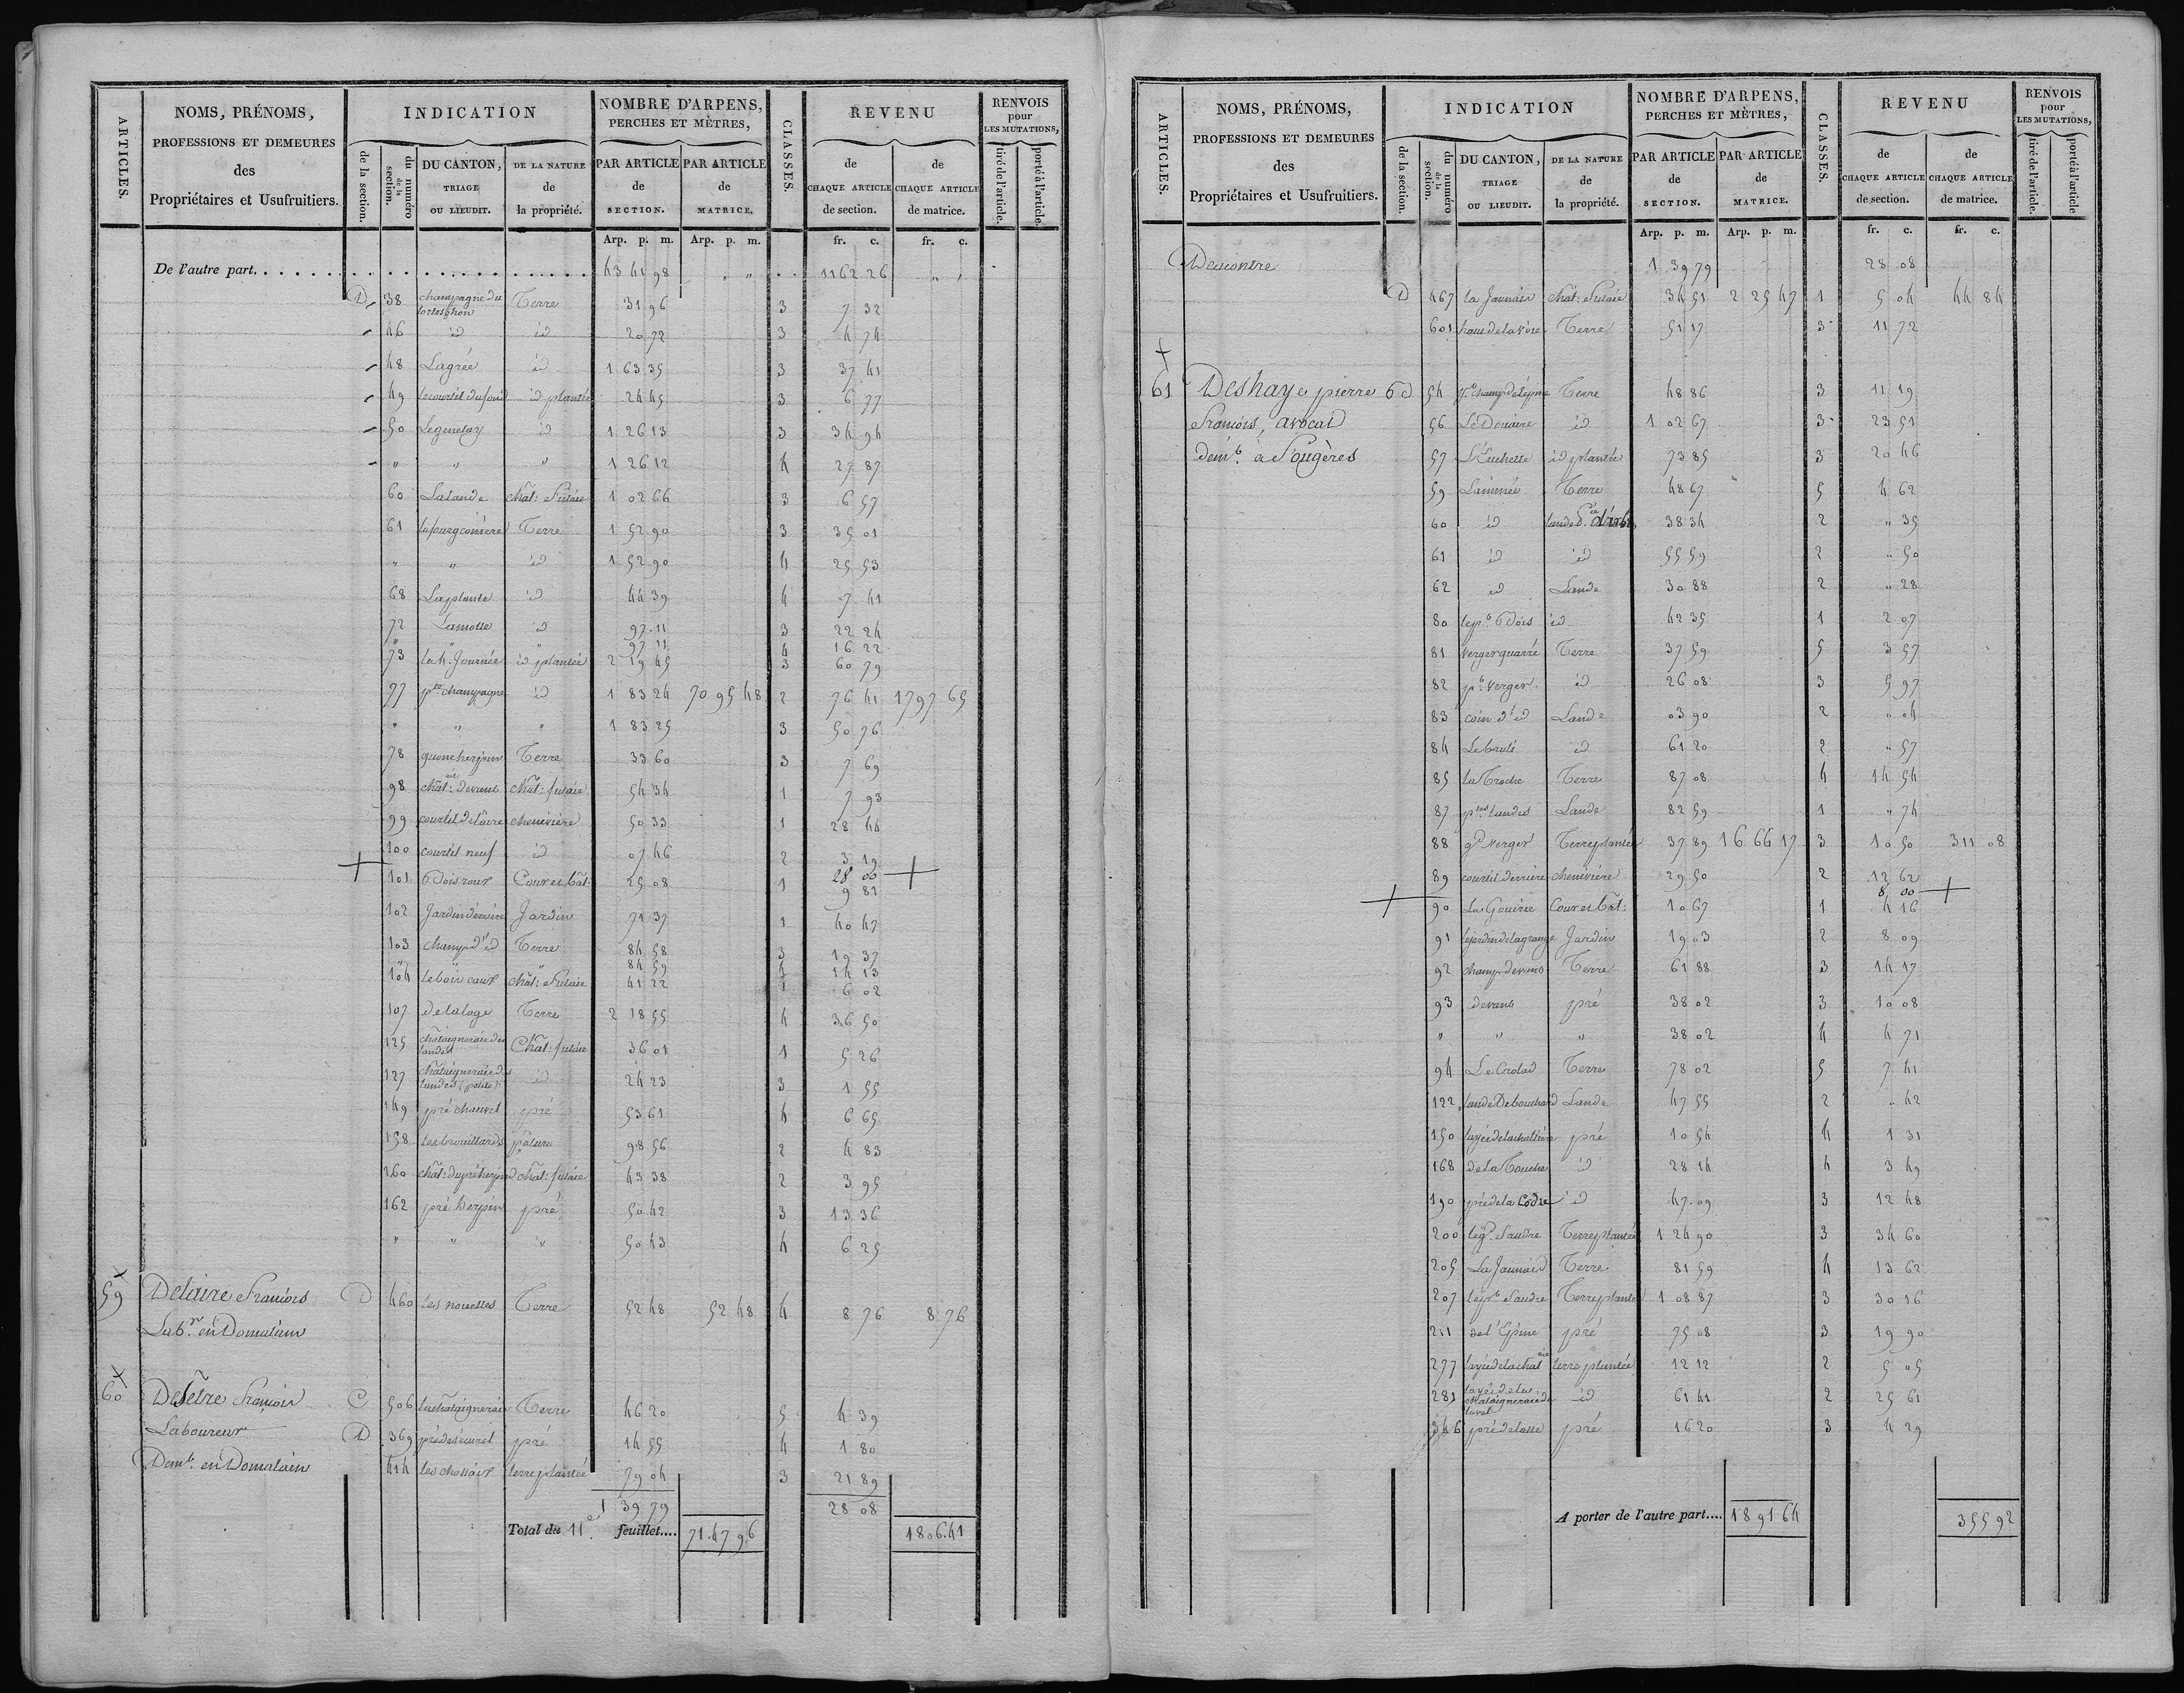 ARTICLES.
NOMS, PRÉNOMS,
PROFESSIONS ET DEMEURES
des
Propriétaires et Usufruitiers.
INDICATION
de la section.
du numéro de la section.
DU CANTON, TRIAGE OU LIEUDIT.
DE LA NATURE de la propriété.
NOMBRE D'ARPENS, PERCHES ET MÈTRES,
PAR ARTICLE de SECTION.
PAR ARTICLE de MATRICE.
CLASSES.
REVENU
de CHAQUE ARTICLE de section.
de CHAQUE ARTICLE de matrice.
RENVOIS pour LES MUTATIONS,
tiré de l'article.
porté à l'article.
Arp. p. m. Arp. p. m. fr. c. fr. c.
De l'autre part. 43 41 98 " " 1162 26 " "
D 38 champagne du Terre 31 96 3 7 32
46 id id 20 72 3 4 74
48 Lagrée id 1 63 35 3 37 41
49 le courtil du fond id plantée 24 45 3 6 77
50 Legenetay id 1 26 13 3 34 94
" " " 1 26 12 4 27 87
60 Lalande chât: futaie 1 02 66 3 6 57
61 Terre 1 52 90 3 35 01
" " id 1 52 90 4 25 53
68 Laplante id 44 39 4 7 41
72 Lamotte id 97 11 3 22 24
" " " 97 11 4 16 22
73 la 4 Journée id plantée 2 19 45 3 60 79
77 pte champagne id 1 83 24 70 95 48 2 76 41 1797 65
" " " 1 83 25 3 50 76
78 Terre 33 60 3 7 69
98 chât: devant chât: futaie 54 34 1 7 93
99 courtil de l'aire chenevière 50 33 1 28 44
100 courtil neuf id 07 46 2 3 19
101 Cour et bât: 25 08 1 28 00
9 81
102 Jardin derrière Jardin 71 37 1 40 47
103 champ d'id Terre 84 58 3 19 37
" " " 84 59 4 14 13
104 chât: futaie 41 22 1 6 02
107 de la loge Terre 2 18 55 4 36 50
125 châtaigneraie des landes Chât: futaie 36 01 1 5 26
127 châtaigneraie des landes (petite) id 24 23 3 1 55
149 pré chauvel pré 53 61 4 6 65
158 les brouillards pâture 98 56 2 4 83
160 chât: du pré herpin chât: futaie 43 38 2 3 95
162 pré herpin pré 50 42 3 13 36
" " " 50 43 4 6 25
59 Delaire François D 460 les nouettes Terre 52 48 52 48 4 8 76 8 76
Labr. en Domalain
60 Delêtre François C 506 la chataigneraie Terre 46 20 5 4 39
Laboureur D 369 pré pré 14 55 4 1 80
Demt. en Domalain 414 terre plantée 79 04 3 21 89
1 39 79 28 08
Total du 11e. feuillet.... 71 47 96 1806.41
ARTICLES.
NOMS, PRÉNOMS,
PROFESSIONS ET DEMEURES
des
Propriétaires et Usufruitiers.
INDICATION
de la section.
du numéro de la section.
DU CANTON, TRIAGE OU LIEUDIT.
DE LA NATURE de la propriété.
NOMBRE D'ARPENS, PERCHES ET MÈTRES,
PAR ARTICLE de SECTION.
PAR ARTICLE de MATRICE.
CLASSES.
REVENU
de CHAQUE ARTICLE de section.
de CHAQUE ARTICLE de matrice.
RENVOIS pour LES MUTATIONS,
tiré de l'article.
porté à l'article
Arp. p. m. Arp. p. m. fr. c. fr. c.
Decontre 1 39 79 28 08
D 467 la Jaunais chât: futaie 34 51 2 25 47 1 5 04 44 84
601 Terre 51 17 3 11 72
61 Deshayes pierre 54 pt. champ de l'épine Terre 48 86 3 11 19
François, avocat 56 Le Douaire id 1 02 67 3 23 51
demt. à Fougères 57 L'Euchette id plantée 73 85 3 20 46
59 Terre 48 67 5 4 62
60 id lande 38 34 2 " 35
61 id id 55 59 2 " 50
62 id Lande 30 88 2 " 28
80 le pt. id 42 35 1 2 07
81 verger quarré Terre 37 59 5 3 57
82 pt. verger id 26 08 3 5 97
83 coin d'id Lande 03 90 2 " 04
84 Le brulé id 61 20 2 " 57
85 la Troche Terre 87 08 4 14 54
87 ptes landes Lande 82 59 1 " 74
88 gd verger Terre plantée 37 89 16 66 17 3 10 50 311 08
89 courtil derrière chenevière 29 50 2 12 62
90 La Gouirie Cour et bât: 10 67 1 8 00
4 16
91 le jardin de la grange Jardin 19 03 2 8 09
92 champ devant Terre 61 88 3 14 17
93 devant pré 38 02 3 10 08
" " " 38 02 4 4 71
94 Le Crolad Terre 78 02 5 7 41
122 lande Debouchard Lande 47 55 2 " 42
150 pré 10 54 4 1 31
168 de la Touche id 28 14 4 3 49
190 pré de la Codre id 47 09 3 12 48
200 le gd. Saudre Terre plantée 1 24 90 3 34 60
205 La Jaunais Terre 81 59 4 13 62
207 le pt Saudre Terre plantée 1 08 87 3 30 16
211 de l'Epine pré 75 08 3 19 90
277 terre plantée 12 12 2 5 05
281 id 61 41 2 25 61
346 pré de lasse pré 16 20 3 4 29
A porter de l'autre part.... 18 91 64 355 92